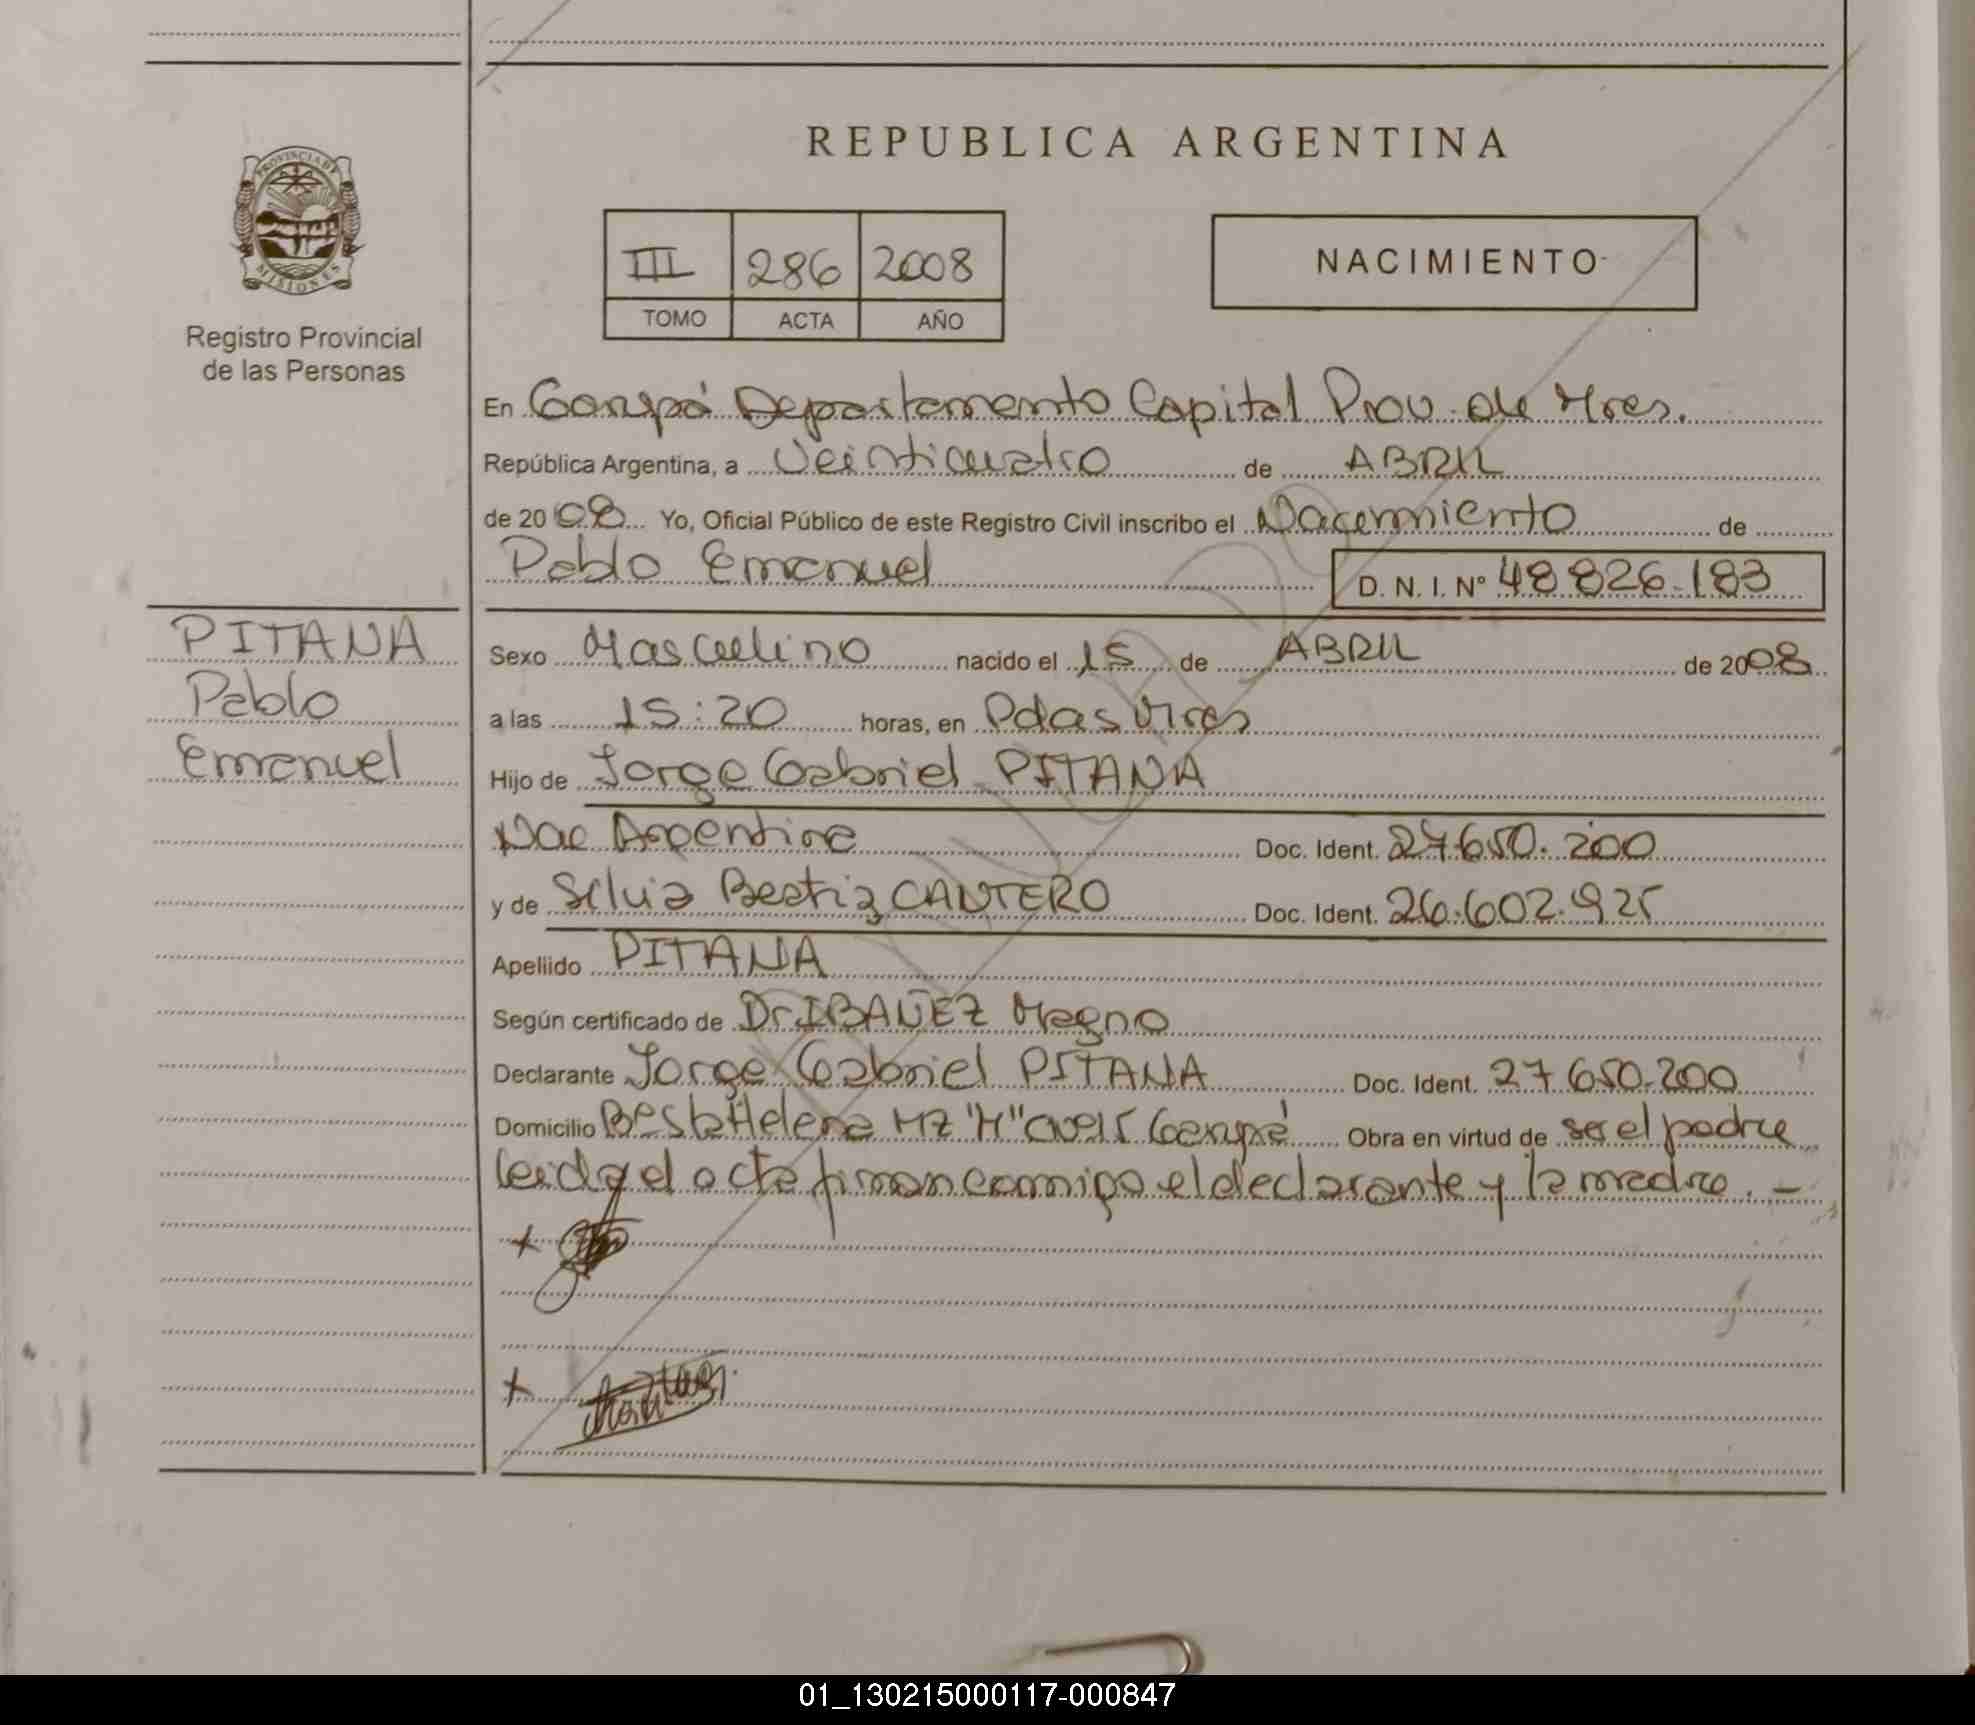 REPUBLICA ARGENTINA
PROVINCIA DE MISIONES
Registro Provincial
de las Personas
III 286 2008
TOMO ACTA AÑO
NACIMIENTO
En Garupá Departamento Capital Prov. de Mnes.
República Argentina, a Veinticuatro de ABRIL
de 2008 Yo, Oficial Público de este Registro Civil inscribo el Nacimiento de
Pablo Emanuel D. N. I. N° 48 826.183
PITANA
Pablo
Emanuel
Sexo Masculino nacido el 15 de ABRIL de 2008
a las 15:20 horas, en Pdas Mnes
Hijo de Jorge Gabriel PITANA
Nac Argentina Doc. Ident. 27.650.200
y de Silvia Beatriz CANTERO Doc. Ident. 26.602.925
Apellido PITANA
Según certificado de Dr IBAÑEZ Magno
Declarante Jorge Gabriel PITANA Doc. Ident. 27 650.200
Domicilio Bº Sta Helena MZ "H" Garupá Obra en virtud de ser el padre
Leida el acta firman conmigo el declarante y la madre. -
x
x
01_130215000117-000847